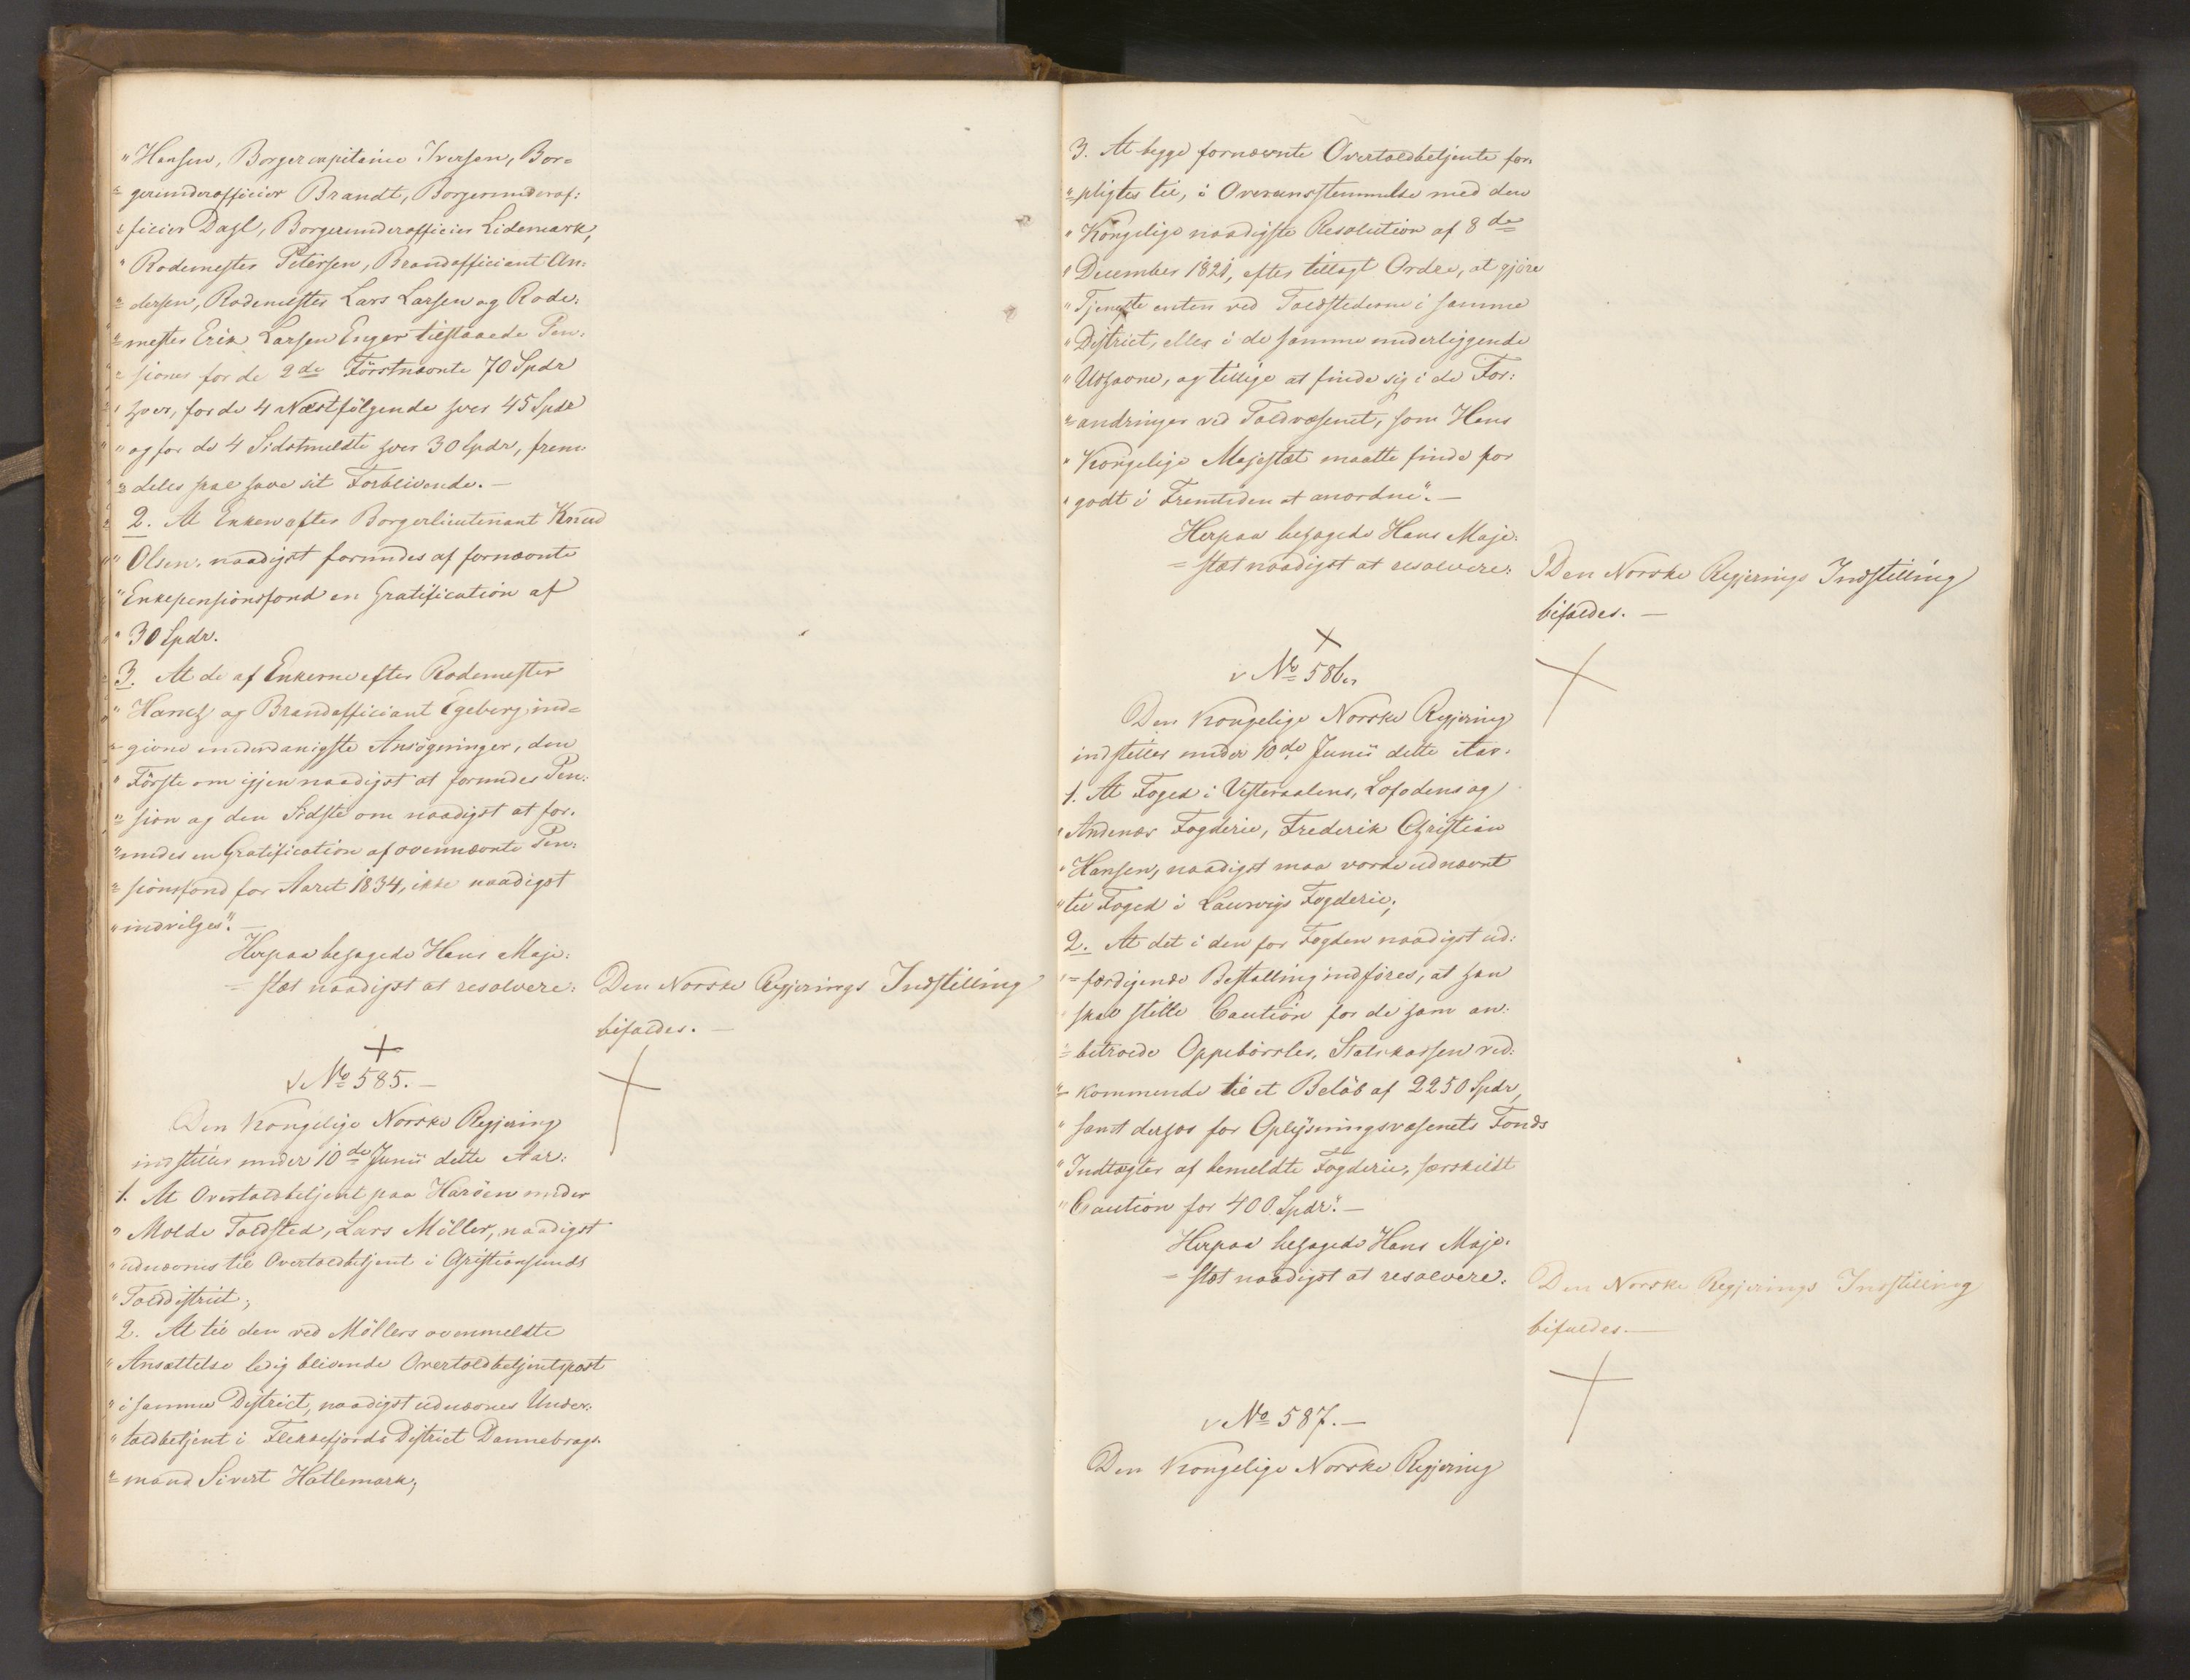 "Hansen, Borgercapitaine Iversen, Bor=
=gerunderofficier Brandt, Borgerunderof:
=ficier Dahl, Borgerunderofficier Lidemark,
"Rodemester Petersen, Brandofficiant An:
=dersen, Rodemester Lars Larsen og Rode:
=mester Erik Larsen Enger tilstaaede Pen:
=sioner for de 2de Förstnævnte 70 Spdr
"hver, for de 4 Næstfölgende hver 45 Spdr
"og for de 4 Sidstmeldte hver 30 Spdr, frem
=deles skal have sit Forblivende.—
2. At Enken efter Borgerlieutenant Knud
"Olsen, naadigst forundes af fornævnte
"Enkepensionsfond en Gratification af
"30 Spdr.
3. At de af Enkerne efter Rodemester
"Hanch og Brandofficiant Egeberg ind=
=givne underdanigste Ansögninger, den
"Förste om igjen naadigst at forundes Pen:
=sion og den Sidste om naadigst at for:
=undes en Gratification af ovennævnte Pen:
=sionsfond for Aaret 1834, ikke naadigst
"indvilges".—
Herpaa behagede Hans Maje:
=stæt naadigst at resolvere: Den Norske Regjerings Indstilling
bifaldes.—
No 585.—
Den Kongelige Norske Regjering
indstiller under 10de Junii dette Aar:
1. At Overtoldbetjent paa Haröen under
"Molde Toldsted, Lars Möller, naadigst
"udnævnes til Overtoldbetjent i Christiansunds
"Tolddistrict;
2. At til den ved Möllers ovenmeldte
"Ansættelse ledig blivende Overtoldbetjentpost
"i samme District, naadigst udnævnes Under:
"toldbetjent i Flekkefjords District Dannebrogs:
=mand Sivert Hatlemark;
3. At begge fornævnte Overtoldbetjente for:
=pligtes til, i Overeensstemmelse med den
"Kongelige naadigste Resolution af 8de
"December 1821, efter tillagt Ordre, at gjöre
"Tjeneste enten ved Toldstederne i samme
"District, eller i de samme underliggende
"Udhavne, og tillige at finde sig i de For:
=andringer ved Toldvæsenet, som Hans
"Kongelige Majestæt maatte finde for
"godt i Fremtiden at anordne".—
Herpaa behagede Hans Maje:
=stæt naadigst at resolvere: Den Norske Regjerings Indstilling
bifaldes.—
No 586.
Den Kongelige Norske Regjering
indstiller under 10de Junii dette Aar:
1. At Foged i Vesteraalens, Lofodens og
"Andenæs Fogderie, Frederik Christian
"Hansen, naadigst maa vorde udnævnt
"til Foged i Laurvigs Fogderie;
2. At det i den for Fogden naadigst ud:
=færdigende Bestalling indföres, at han
"skal stille Caution for de ham an:
=betroede Oppebörsler, Statskassen ved:
=kommende til et Belöb af 2250 Spdr,
"samt derhos for Oplysningsvæsenets Fonds
"Indtægter af bemeldte Fogderie, særskildt
"Caution for 400 Spdr".—
Herpaa behagede Hans Maje:
=stæt naadigst at resolvere: Den Norske Regjerings Indstilling
bifaldes.—
No 587.—
Den Kongelige Norske Regjering